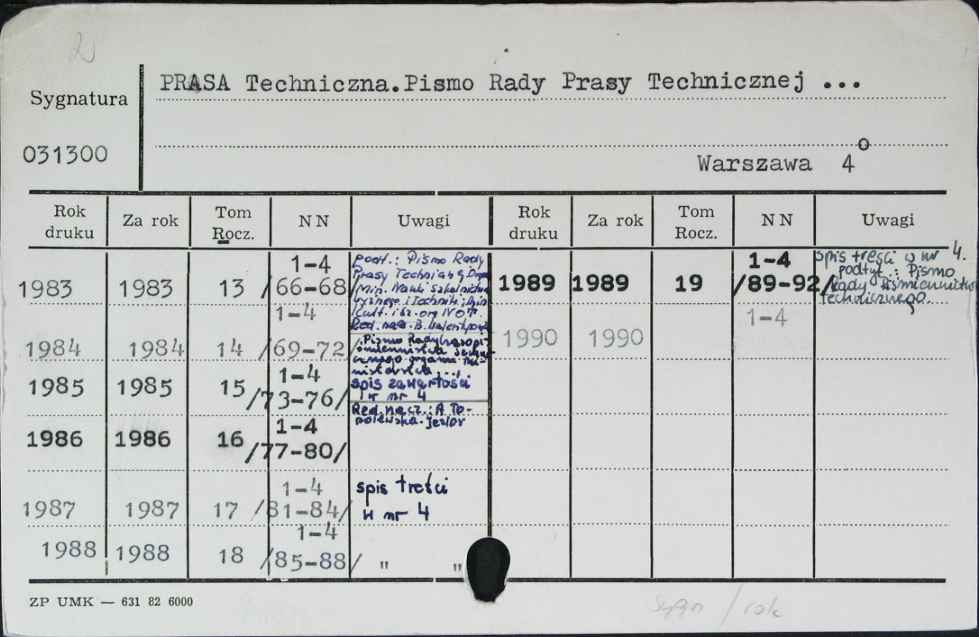 PRASA Techniczna.Pismo Rady Prasy Technicznej ...
Sygnatura
031300
Warszawa 4o
Rok druku Za rok Tom Rocz. NN Uwagi Rok druku Za rok Tom Rocz. NN Uwagi
1983 1983 13 1-4 /66-68/
podt.: Pismo Rady
Prasy Techn.
Min. Nauki
1984 1984 14 1-4 /69-72/
Pismo Rady
spis zawartości
w nr 4
1985 1985 15 1-4 /73-76/
Red. nacz.: A
1986 1986 16 1-4 /77-80/
1987 1987 17 1-4 /81-84/
spis treści
w nr 4
1988 1988 18 1-4 /85-88/ " "
1989 1989 19 1-4 /89-92/
spis treści w nr 4.
podtyt.: Pismo
Rady Piśmiennictwa
Technicznego.
1990 1990 1-4
ZP UMK — 631 82 6000
sygn / rok